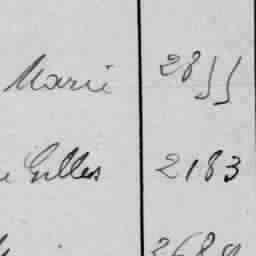 Marie 2855
Gilles 2183